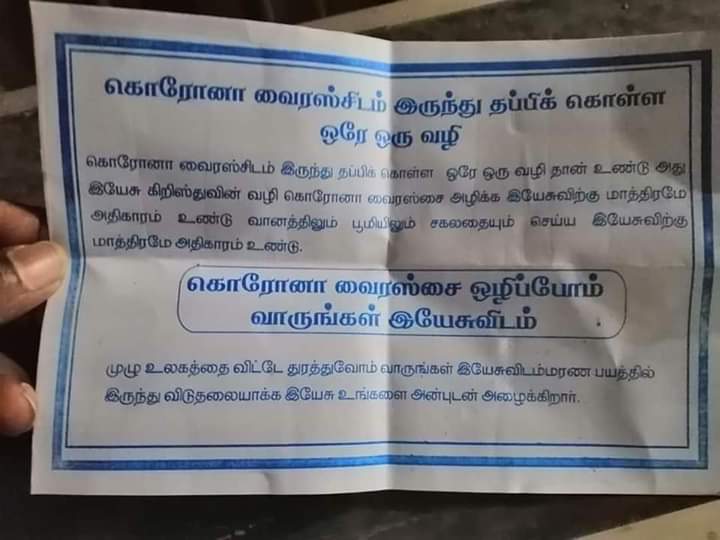 கொரோனா வைரஸ்சிடம் இருந்து தப்பிக் கொள்ள
ஒரே ஒரு வழி
கொரோனா வைரஸ்சிடம் இருந்து தப்பிக் கொள்ள ஒரே ஒரு வழி தான் உண்டு அது
இயேசு கிறிஸ்துவின் வழி கொரோனா வைரஸ்சை அழிக்க இயேசுவிற்கு மாத்திரமே
அதிகாரம் உண்டு வானத்திலும் பூமியிலும் சகலதையும் செய்ய இயேசுவிற்கு
மாத்திரமே அதிகாரம் உண்டு.
கொரோனா வைரஸ்சை ஒழிப்போம்
வாருங்கள் இயேசுவிடம்
முழு உலகத்தை விட்டே துரத்துவோம் வாருங்கள் இயேசுவிடம்மரண பயத்தில்
இருந்து விடுதலையாக்க இயேசு உங்களை அன்புடன் அழைக்கிறார்.